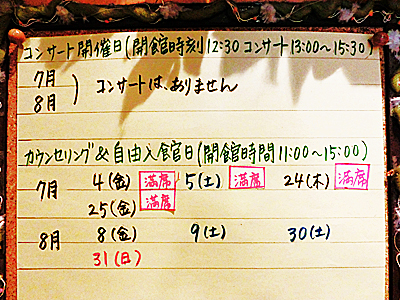 コンサート開催日(開館時刻12:30 コンサート13:00~15:30)
7月
8月
) コンサートは、ありません
カウンセリング&自由入館日(開館時間11:00~15:00)
7月 4(金) 満席 5(土) 満席 24(木) 満席
25(金) 満席
8月 8(金) 9(土) 30(土)
31(日)